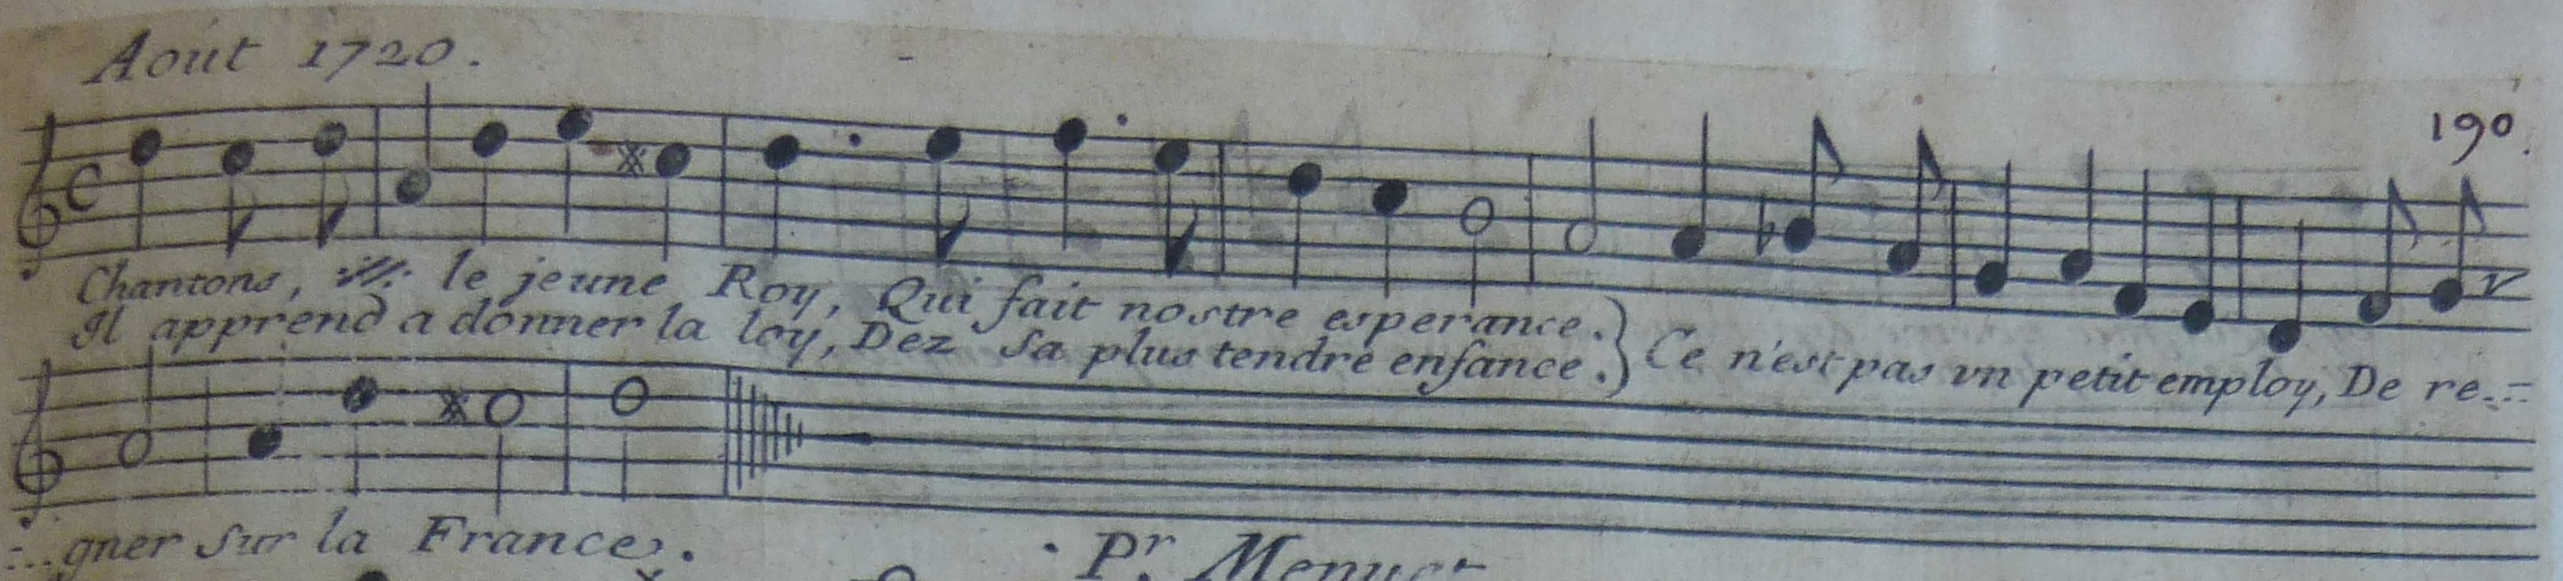 Aoút 1720.
190.
Chantons, le jeune Roy, Qui fait nostre esperance.
Il apprend a donner la loy, Dez sa plus tendre enfance. Ce n'est pas vn petit employ, De re..=
=..gner sur la France.
Pr. Menuet